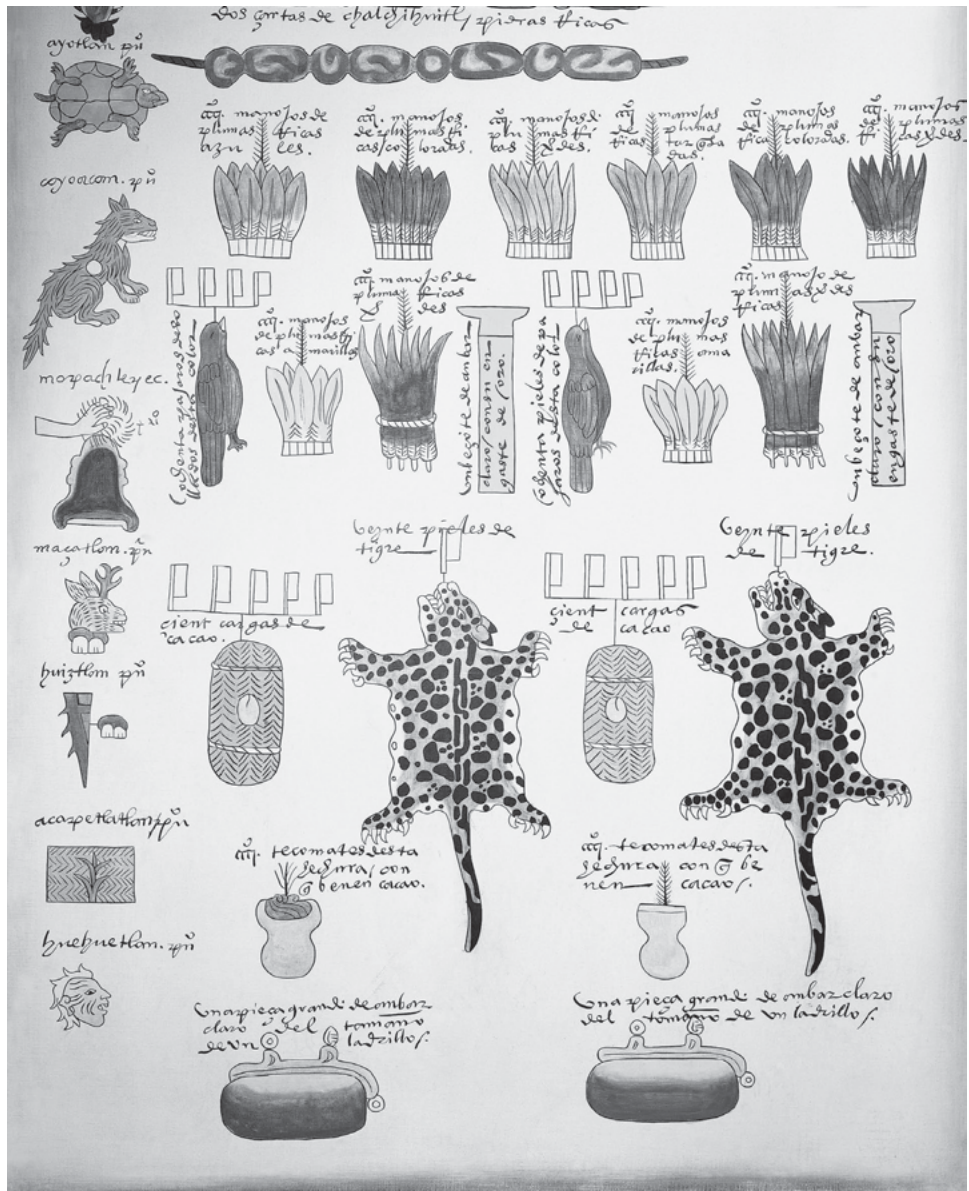 dos sartas de chalchihuitl / piedras Ricas
ayotlan. puo
cccc. manojos de
plumas Ricas
azules.
cccc. manojos
de plumas Ri
cas / coloradas.
cccc. manojos de
plumas Ri
cas
cccc. manojos
de plumas
Ricas
cccc. manojos
de plumas
Ricas coloradas.
cccc. manojos
coyoacan. puo
mapachtepec.
maçatlan. puo
huiztlan puo
acapetlatlan / puo
huehuetlan. puo
ochenta pajaros deso
llados desta color
cccc. manojos
de plumas Ri
cas amarillas
cccc. manojos de
plumas Ricas
des
un beçote de anbar
claro / con su en
gaste de / oro.
ochenta pieles de pa
jaros desta color
cccc. manojos
de plumas
Ricas ama
rillas.
cccc. manojo de
plumas
Ricas
un beçote de ambar
claro / con su
engaste de / oro
veynte pieles de
tigre
veynte pieles
de tigre.
çient cargas de
cacao.
çient cargas
de cacao
cccc. tecomates desta
hechura / con
q benen cacao.
cccc. tecomates desta
hechura con q be
nen cacao /.
una pieça grande de anbar
claro del tamaño
de un ladrillo /.
una pieça grande de ambar claro
del tamaño de un ladrillo /.